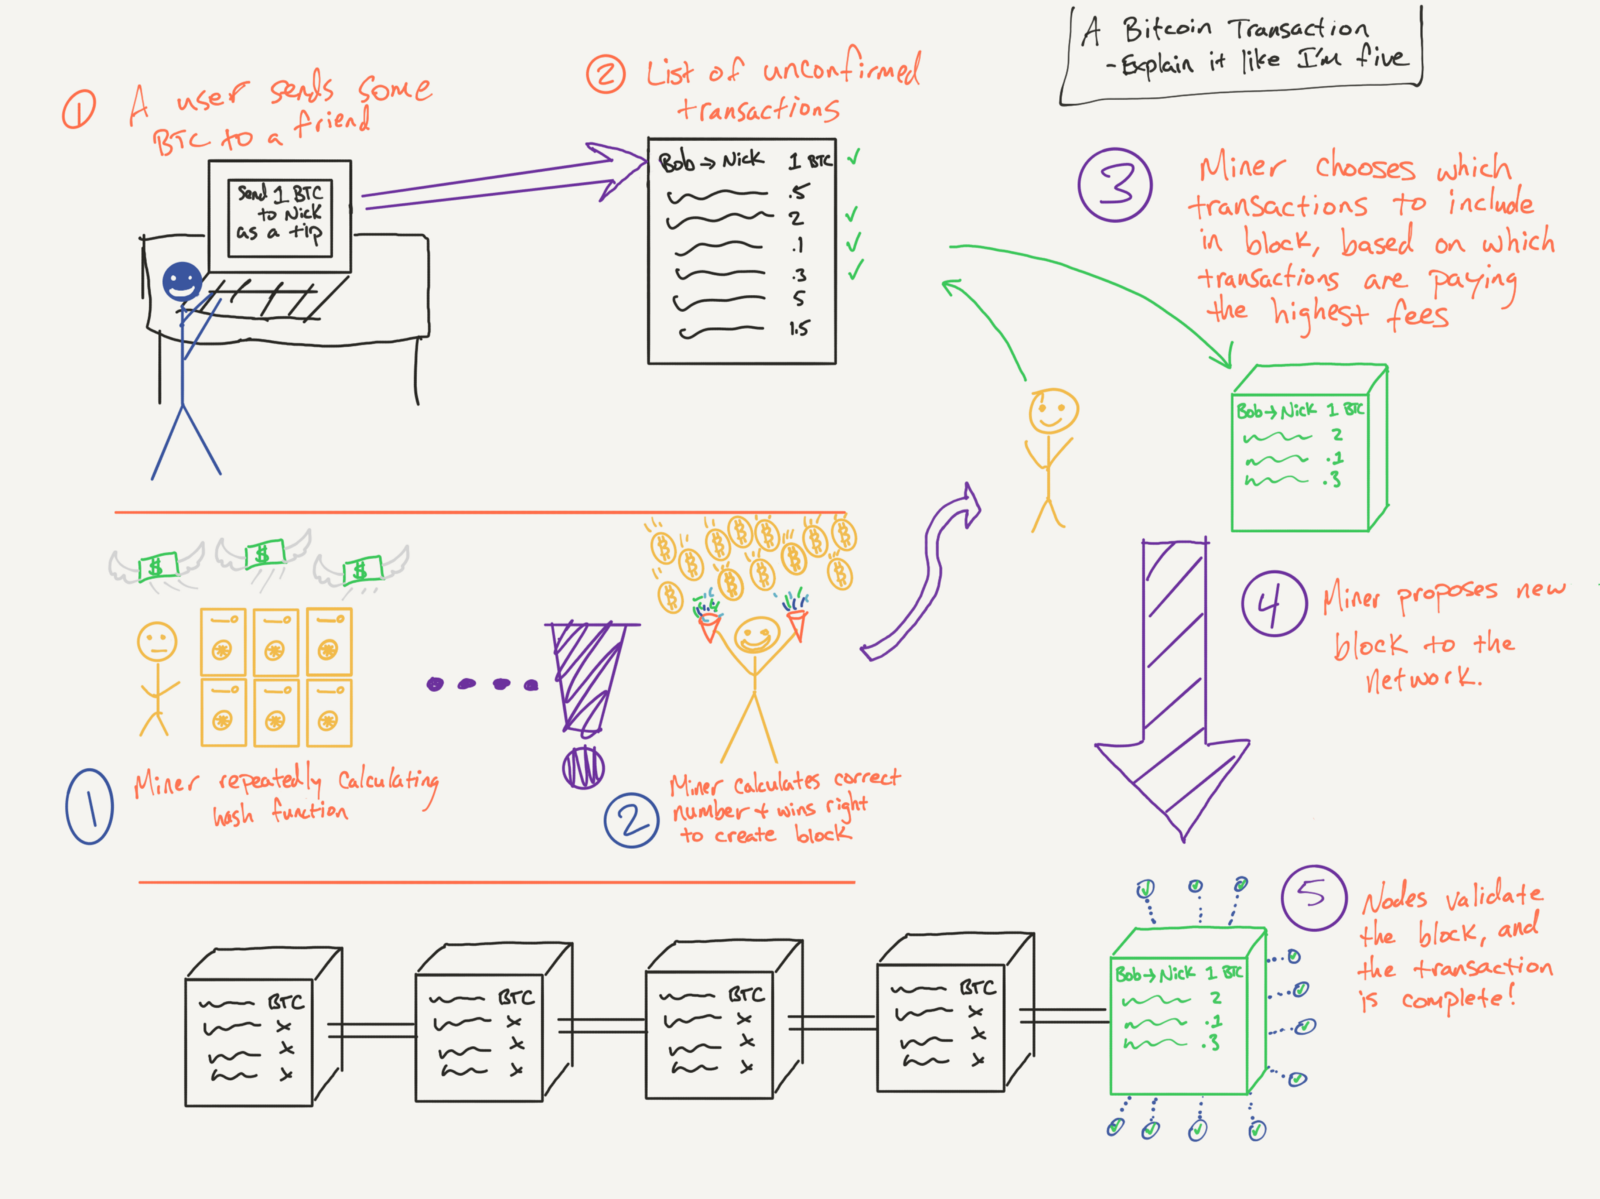 A Bitcoin Transaction
- Explain it like I'm five
1 A user sends some
BTC to a friend
Send 1 BTC
to Nick
as a tip
2 List of unconfirmed
transactions
Bob → Nick 1 BTC ✓
.5
2 ✓
.1 ✓
.3 ✓
5
1.5
3 Miner chooses which
transactions to include
in block, based on which
transactions are paying
the highest fees
Bob → Nick 1 BTC
2
.1
.3
$ $ $
1 Miner repeatedly calculating
hash function
2 Miner calculates correct
number + wins right
to create block
4 Miner proposes new
block to the
network.
5 Nodes validate
the block, and
the transaction
is complete!
BTC
x
x
x
BTC
x
x
x
BTC
x
x
x
BTC
x
x
x
Bob → Nick 1 BTC
2
.1
.3